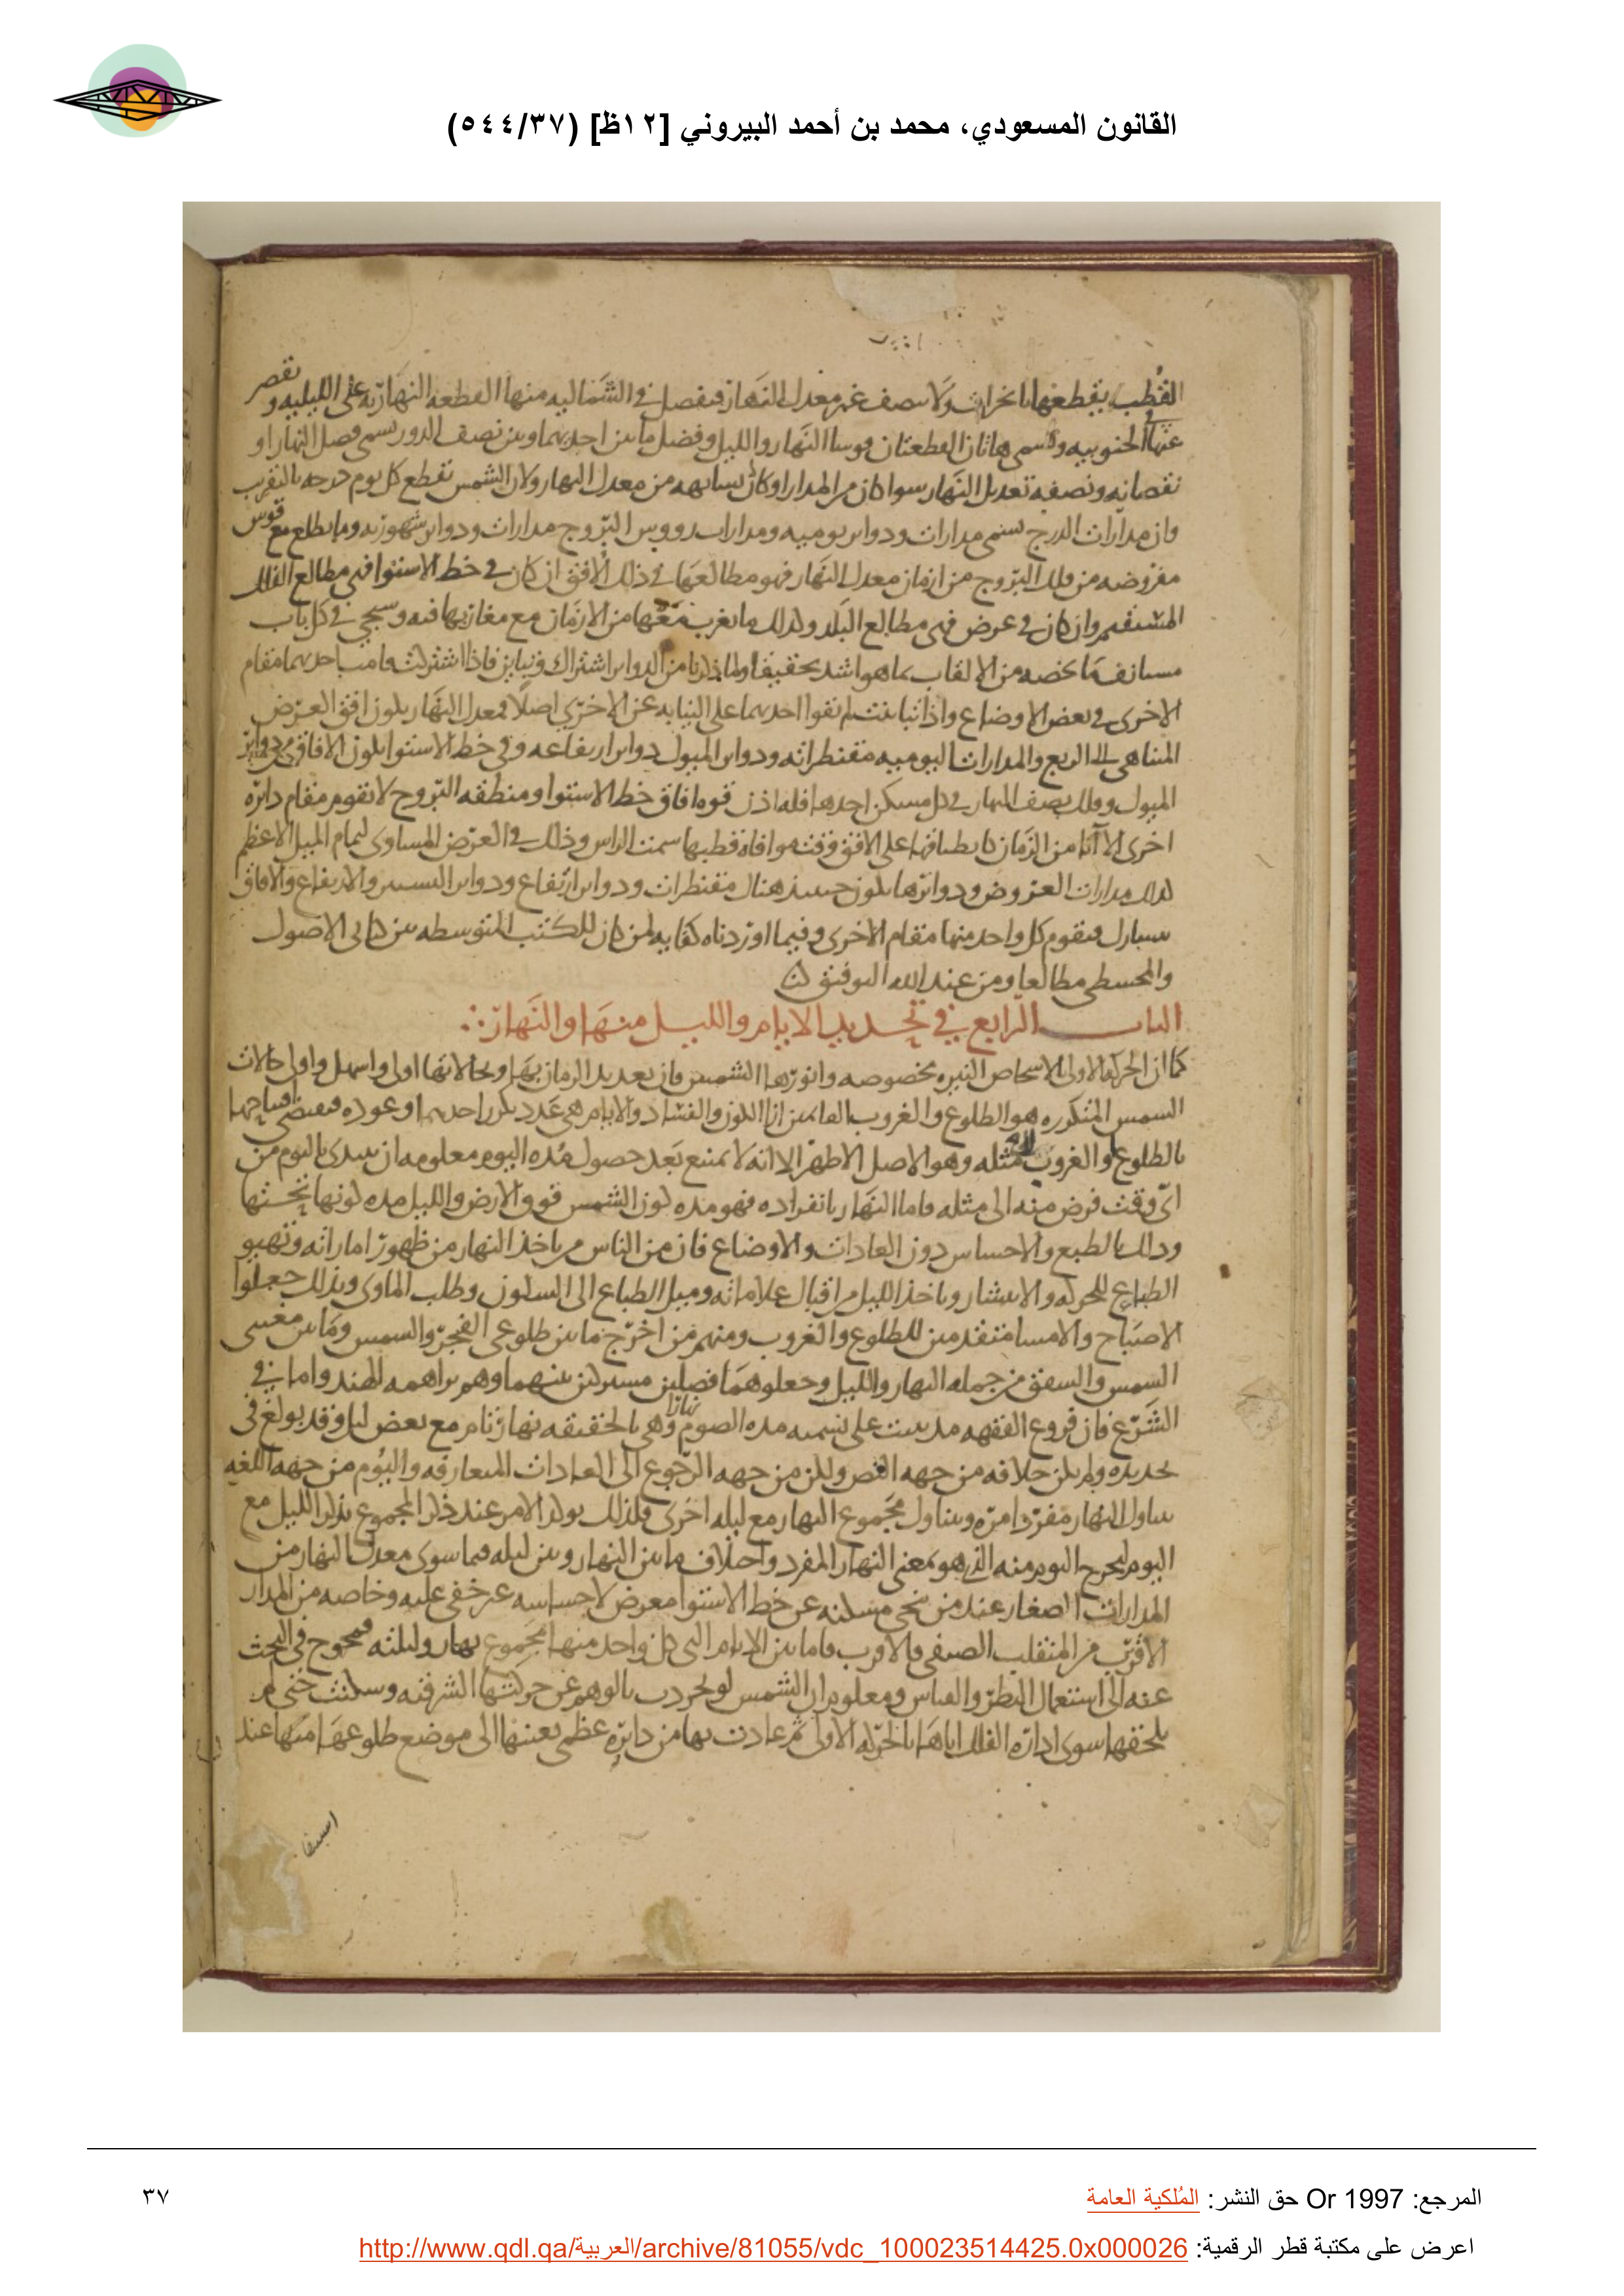 القانون المسعودي، محمد بن أحمد البيروني [١٢ظ] (٥٤٤/٣٧)
القطب يقطعها بانحراف ولا ينصف غير معدل النهار فيفصل في الشماليه منها القطعه النهاريه على الليليه وتقصر
عنها في الجنوبيه وتسمى هاتان القطعتان قوسا النهار والليل وفضل ما بين احديهما وبين نصف الدور يسمى فضل النهار او
نقصانه ونصفه تعديل النهار سوا كان من المدار او كان بشابهه من معدل النهار ولان الشمس تقطع كل يوم درجه بالتقريب
وان مدارات الدرج تسمى مدارات ودواير يوميه ومدارات رووس البروج مدارات ودواير شهوريه وما يطلع مع قوس
مفروضه من فلك البروج من ازمان معدل النهار فهو مطالعها في ذلك الافق ان كان في خط الاستوا فهى مطالع الفلك
المستقيم وان كان في عرض فهى مطالع البلد وكذلك ما يغرب معها من الازمان مع مغاربها فيه وسيجي في كل باب
مستانف ما يخصه من الالقاب بما هو اشد تحقيقا ولما ذكرنا من الدواير اشتراك وتباين فاذا اشتركت قامت احديهما مقام
الاخرى في بعض الاوضاع واذا تباينت لم تقوا احديهما على النيابه عن الاخرى اصلا فمعدل النهار يكون افق العرض
المتناهى الى الربع والمدارات اليوميه مقنطراته ودواير الميول دواير ارتفاعه وفي خط الاستوا يكون الافاق من دواير
الميول وفلك نصف النهار في كل مسكن احدها فله اذن قوه افاق خط الاستوا ومنطقه البروج لا تقوم مقام دائره
اخرى الا آنا من الزمان كانطباقها على الافق وقت موافاه قطبها سمت الراس وذلك في العرض المساوى لتمام الميل الاعظم
كذلك مدارات العروض ودوائرها يكون حينئذ هناك مقنطرات ودواير ارتفاع ودواير السموت والارتفاع والافاق
تتبارك فيقوم كل واحد منها مقام الاخرى وفيما اوردناه كفايه لمن كان للكتب المتوسطه بين كتابى الاصول
والمجسطى مطالعا ومن عند الله التوفيق
الباب الرابع في تحديد الايام والليل منها والنهار
كما ان الحركه الاولى الاشخاص النيره مخصوصه وانورها الشمس فان تعديد الزمان بها وبحالاتها اولى واسهل واولى حالات
الشمس المتكرره هو الطلوع والغروب والايام هى عدد تكرر احديهما وعوده فيقتضى افتتاحها
بالطلوع والغروب مثله وهو الاصل الاظهر الا انه لا يمتنع بعد حصول مده اليوم معلومه ان يبتدى باليوم من
اى وقت فرض منه الى مثله فاما النهار بانفراده فهو مده كون الشمس فوق الارض والليل مده كونها تحتها
وذلك بالطبع والاحساس دون العادات والاوضاع فان من الناس من ياخذ النهار من ظهور اماراته وتهيو
الطباع للحركه والانتشار وياخذ الليل من اقبال علاماته وميل الطباع الى السكون وطلب الماوى وبذلك جعلوا
الاصباح والامسا متقدمين للطلوع والغروب ومنهم من اخرج ما بين طلوعى الفجر والشمس وما بين مغيبى
الشمس والشفق من جمله النهار والليل وجعلوهما فصلين مشتركين بينهما وهم براهمه الهند واما في
الشرع فان فروع الفقهه قد بنيت على تسميه مده الصوم نهارا وهى بالحقيقه نهار تام مع بعض ليل وقد بولغ في
تحديده ولم يكن خلافه من جهه النص ولكن من جهه الرجوع الى العادات المتعارفه واليوم من جهه اللغه
يتناول النهار مفردا مره ويتناول مجموع النهار مع ليله اخرى فلذلك يوكد الامر عند ذكر المجموع بذكر الليل مع
اليوم ليخرج اليوم منه الذى هو بمعنى النهار المفرد واختلاف ما بين النهار وبين ليله فيما سوى معدل النهار من
المدارات الصغار عند من تنحى مسكنه عن خط الاستوا معرض لاحساسه غير خفى عليه وخاصه من المدار
الاقرب من المنقلب الصيفى فالاقرب فاما بين الايام التى كل واحد منها مجموع نهار وليلته فمحوج في البحث
عنه الى استعمال النظر والقياس ومعلوم ان الشمس لو تجردت بالوهم عن حركتها الشرقيه وسكنت حتى لم
يلحقها سوى اداره الفلك اياها بالحركه الاولى ثم عادت بها من دائره عظمى بعينها الى موضع طلوعها منها عند
المرجع: Or 1997 حق النشر: المُلكية العامة
٣٧
اعرض على مكتبة قطر الرقمية: http://www.qdl.qa/العربية/archive/81055/vdc_100023514425.0x000026